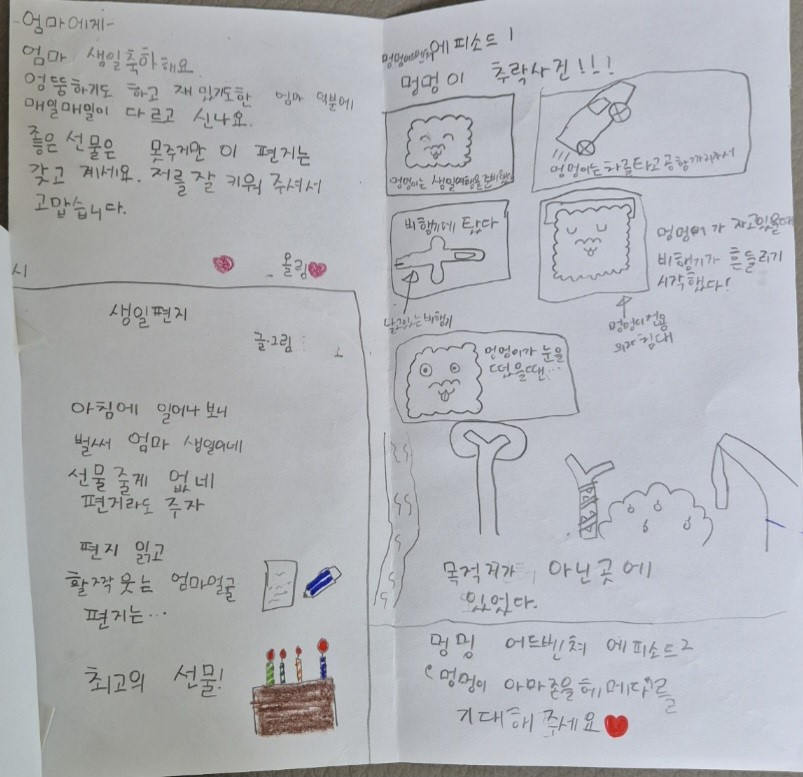 -엄마에게-
엄마 생일축하해요
엉뚱하기도 하고 재밌기도한 엄마 덕분에
매일매일이 다르고 신나요.
좋은 선물은 못주지만 이 편지는
갖고 계세요. 저를 잘 키워 주셔서
고맙습니다.
올림
시
생일편지
글·그림
아침에 일어나 보니
벌써 엄마 생일이네
선물 줄게 없네
편지라도 주자
편지 읽고
활짝 웃는 엄마얼굴
편지는…
최고의 선물!
에피소드 1
멍멍이 추락사건!!!
멍멍이는 생일여행을 준비했다
멍멍이는 차를 타고 공항까지 가서
비행기에 탔다
날고있는 비행기
멍멍이가 자고있을때
비행기가 흔들리기
시작했다!
멍멍이 전용
의자 침대
멍멍이가 눈을
떴을땐…
목적지가 아닌곳에
있었다.
멍멍 어드벤쳐 에피소드2
멍멍이 아마존을 헤메다를
기대해 주세요